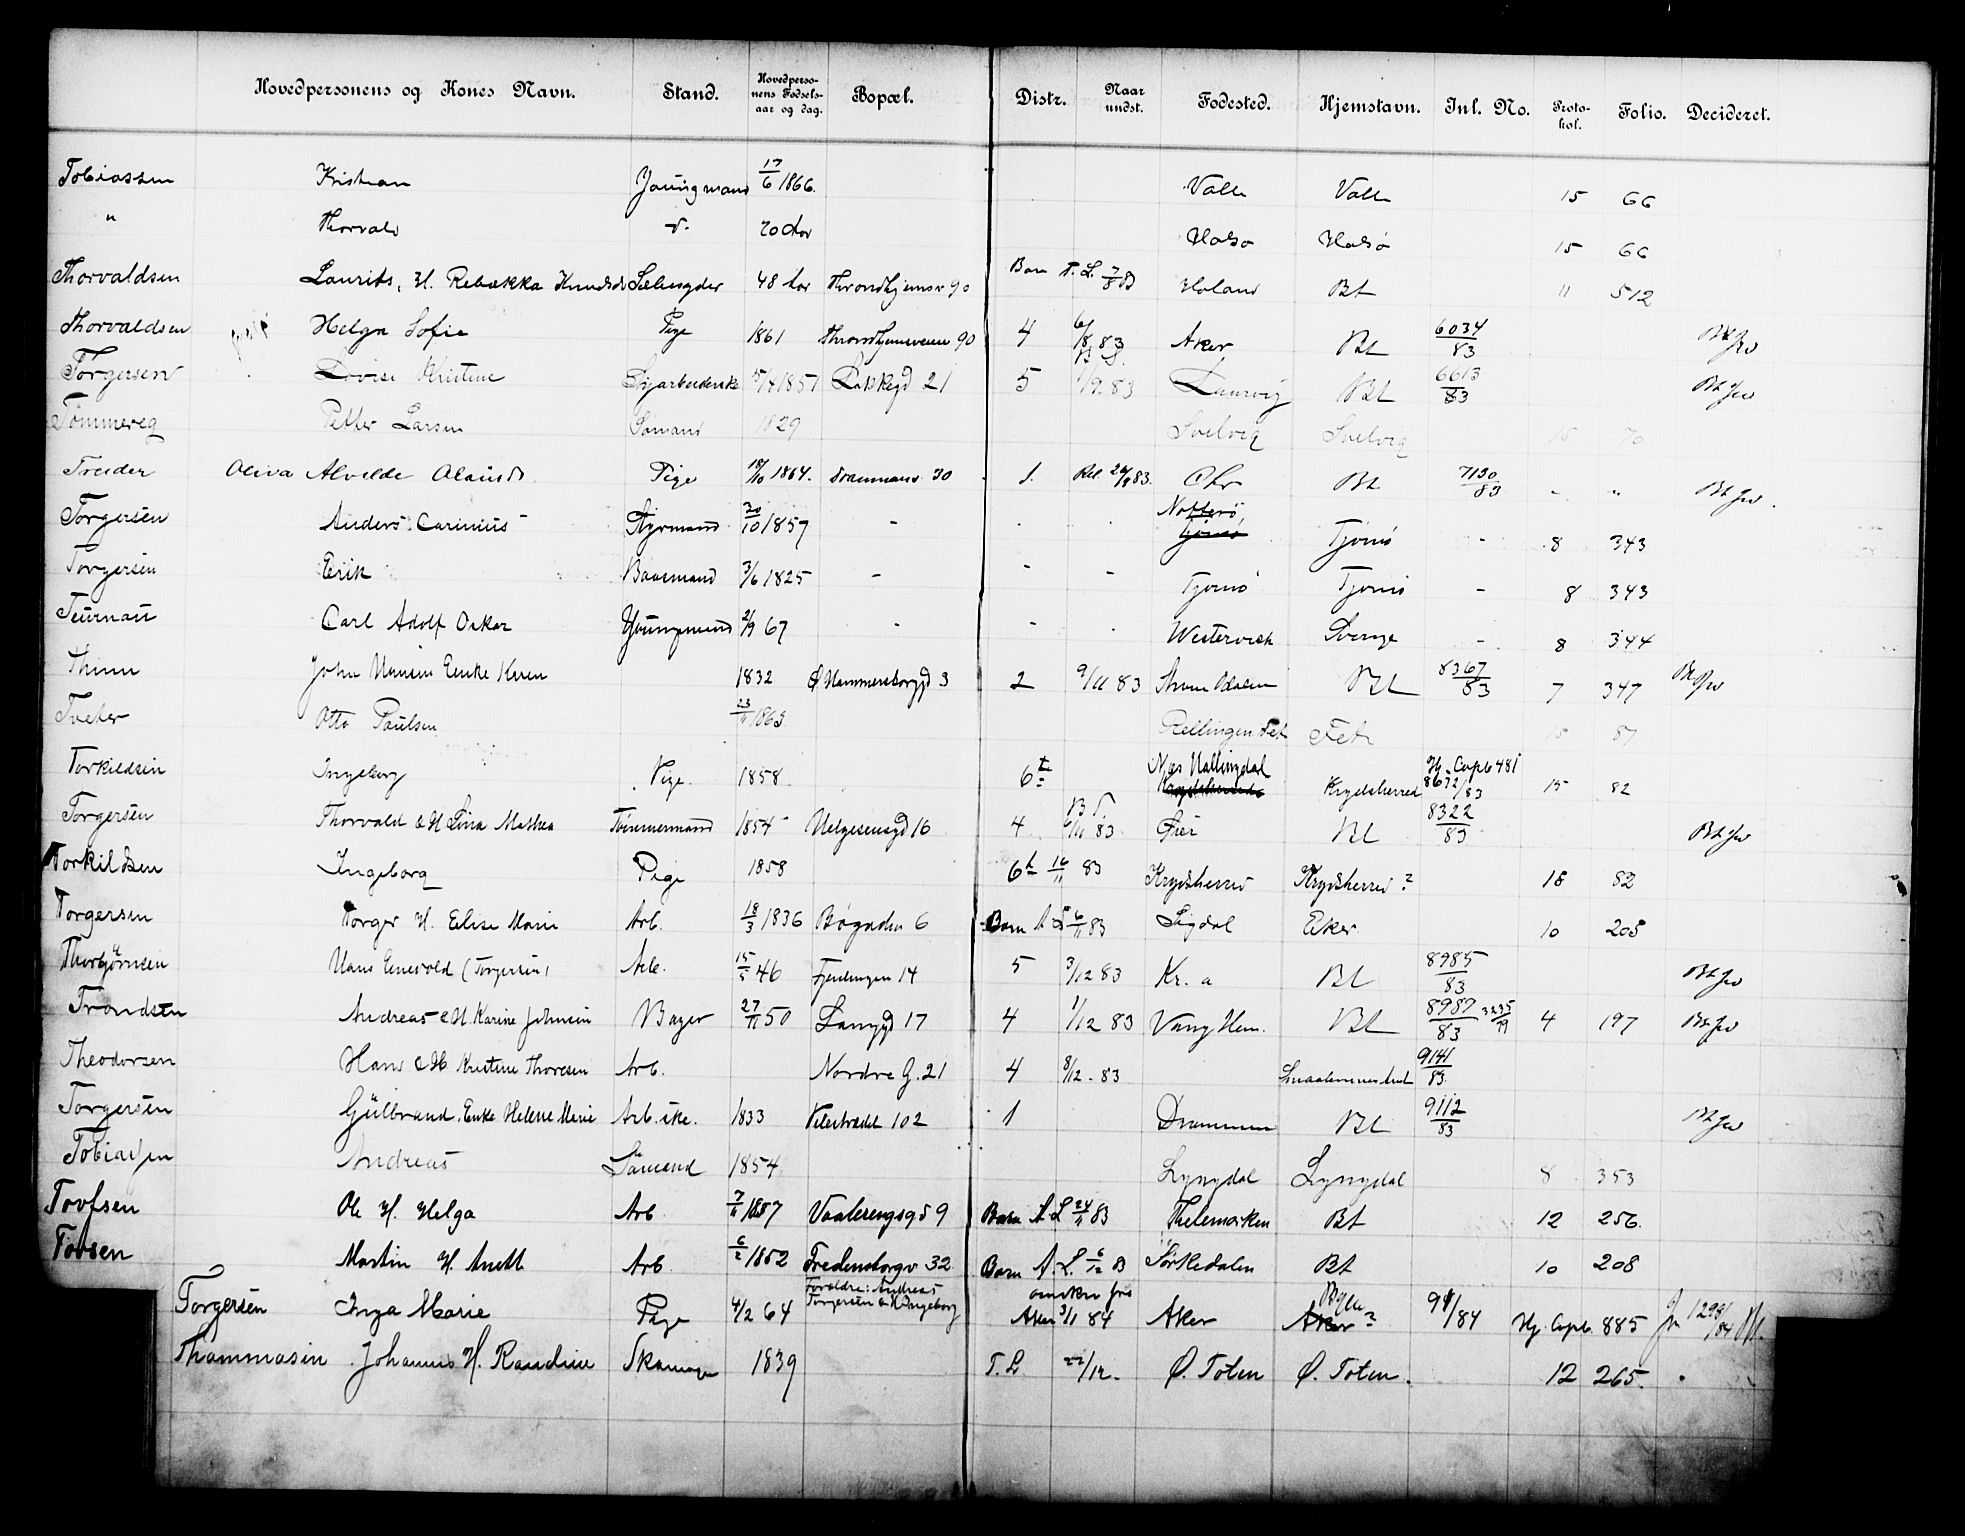 Hovedpersonens og Kones Navn. Stand. Hovedperso-nens Fødsels-aar og dag. Bopæl. Distr. Naar undst. Fødested. Hjemstavn. Inl. No. Proto-kol. Folio. Decideret.
Tobiassen Kristian Youngmand 17/6 1866. Valle Valle 15 66
" Thorvald d. 20 Aar Halsø Halsø 15 66
Thorvaldsen Laurits, H. Rebekka Knudsd 48 Aar Throndhjemsv 90 Barn T. L. 7/8 83 Høland Bt 11 512
Thorvaldsen Helga Sofie Pige 1861 Throndhjemsveien 90 4 6/8 83 Aker Bt 6034/83
Torgersen Lovise Kristine Syarbeiderske 1857 Lakkegd 21 5 /9 83 Laurvig Bt 6613/83
Tømmereg Petter Larsen Sømand 1829 Svelvig Svelvig 15 70
Treider Oliva Alvilde Olausd Pige 18/10 1864. Drammensv 30 1. 24/9 83. Chr Bt 7130/83 - "
Torgersen Anders Carinius Styrmand 20/10 1857 - Nøtterø Tjømø Tjømø - 8 343
Torgersen Erik Baasmand 3/6 1825 - - - Tjømø Tjømø - 8 343
Teurnau Carl Adolf Oskar Youngmand 2/9 67 - - Westervick Sverige - 8 344
Thune John Hansen Enke Karen 1832 Ø Hammersborgd 3 2 9/11 83 Bt 8367/83 7 347
Tveter Otto Paulsen 23/11 1863 Rellingen Fet Fet 15 87
Torkildsen Ingeborg Pige. 1858. 6te Næs Hallingdal Krydsherred Krydsherred Hj. Copb 481 8672/83 15 82
Torgersen Thorvald & H Lina Mathea Tømmermand 1854 Helgesensgd 16 4 6/11 83 Bt 8322/83
Torkildsen Ingeborg Pige 1858 6t 16/11 83 Krydsherred Krydsherred? 18 82
Torgersen Torger H. Elise Marie Arb. 18/3 1836 Bøgaden 6 Barn A L 6/11 83 Sigdal Eker 10 205
Thorbjørnsen Hans Enevold (Torgersen) Arb. 15/5 46 Fjerdingen 14 5 3/12 83 Kr. a Bt 8985/83
Trondsen Andreas & H. Karine Johnsen Bager 27/11 50 Langgd 17 4 1/12 83 Vang Hem. Bt 8987/83 3235/79 4 197
Theodorsen Hans & H Kristine Thoresen Arb. Nordre G. 21 4 8/12 - 83 Smaalenenes Amt 9141/83.
Torgersen Gulbrand. Enke Helene Marie Arb. ske. 1833 Pilestrædet 102 1 Drammen Bt 9112/83
Tobiassen Andreas Sømand 1854 Lyngdal Lyngdal 8 353
Tovfsen Ole H. Helga Arb 7/11 1857 Vaalerengsgd 9 Barn A L 24/11 83 Thelemarken Bt 12 256.
Tovsen Martin H. Anett Arb 6/2 1852 Fredensborgv 32 Barn A. L. 6/12 83 Sørkedalen Bt 10 208
Torgersen Inga Marie Pige 4/2 64 Forældre: Andreas Torgersen & H Ingeborg Aker 3/1 84 Aker Aker? 98/84 Hj. Copb. 885 1291/84
Thommasen Johannes H. Randine 1839 T. L. 22/12. Ø. Toten Ø. Toten. 12 265.